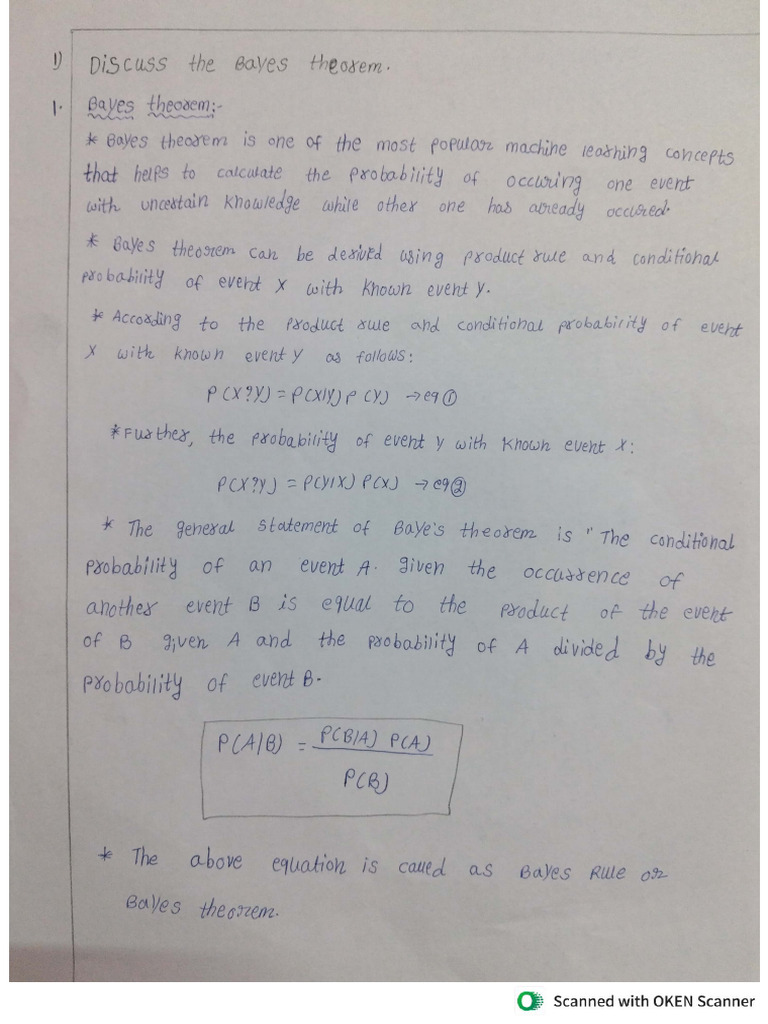 1) Discuss the Bayes theorem.
1. Bayes theorem:-
* Bayes theorem is one of the most popular machine learning concepts
that helps to calculate the probability of occuring one event
with uncertain knowledge while other one has already occured.
* Bayes theorem can be derived using product rule and conditional
probability of event X with known event Y.
* According to the product rule and conditional probability of event
X with known event Y as follows:
P(X?Y) = P(X|Y) P(Y) → eq ①
* Further, the probability of event Y with known event X:
P(X?Y) = P(Y|X) P(X) → eq ②
* The general statement of Baye's theorem is "The conditional
probability of an event A. given the occurrence of
another event B is equal to the product of the event
of B given A and the probability of A divided by the
probability of event B.
P(A|B) = P(B|A) P(A)
P(B)
* The above equation is called as Bayes Rule or
Bayes theorem.
Scanned with OKEN Scanner